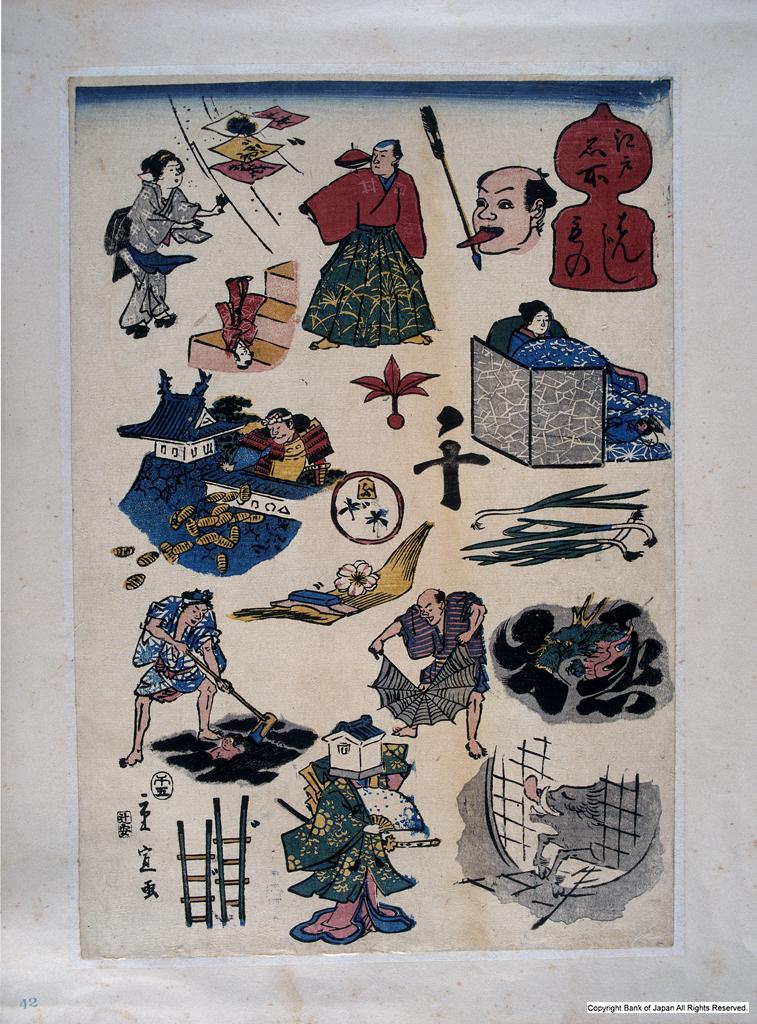 江戸
名所
はんじ
もの
千
十五
重宣画
42
Copyright Bank of Japan All Rights Reserved.